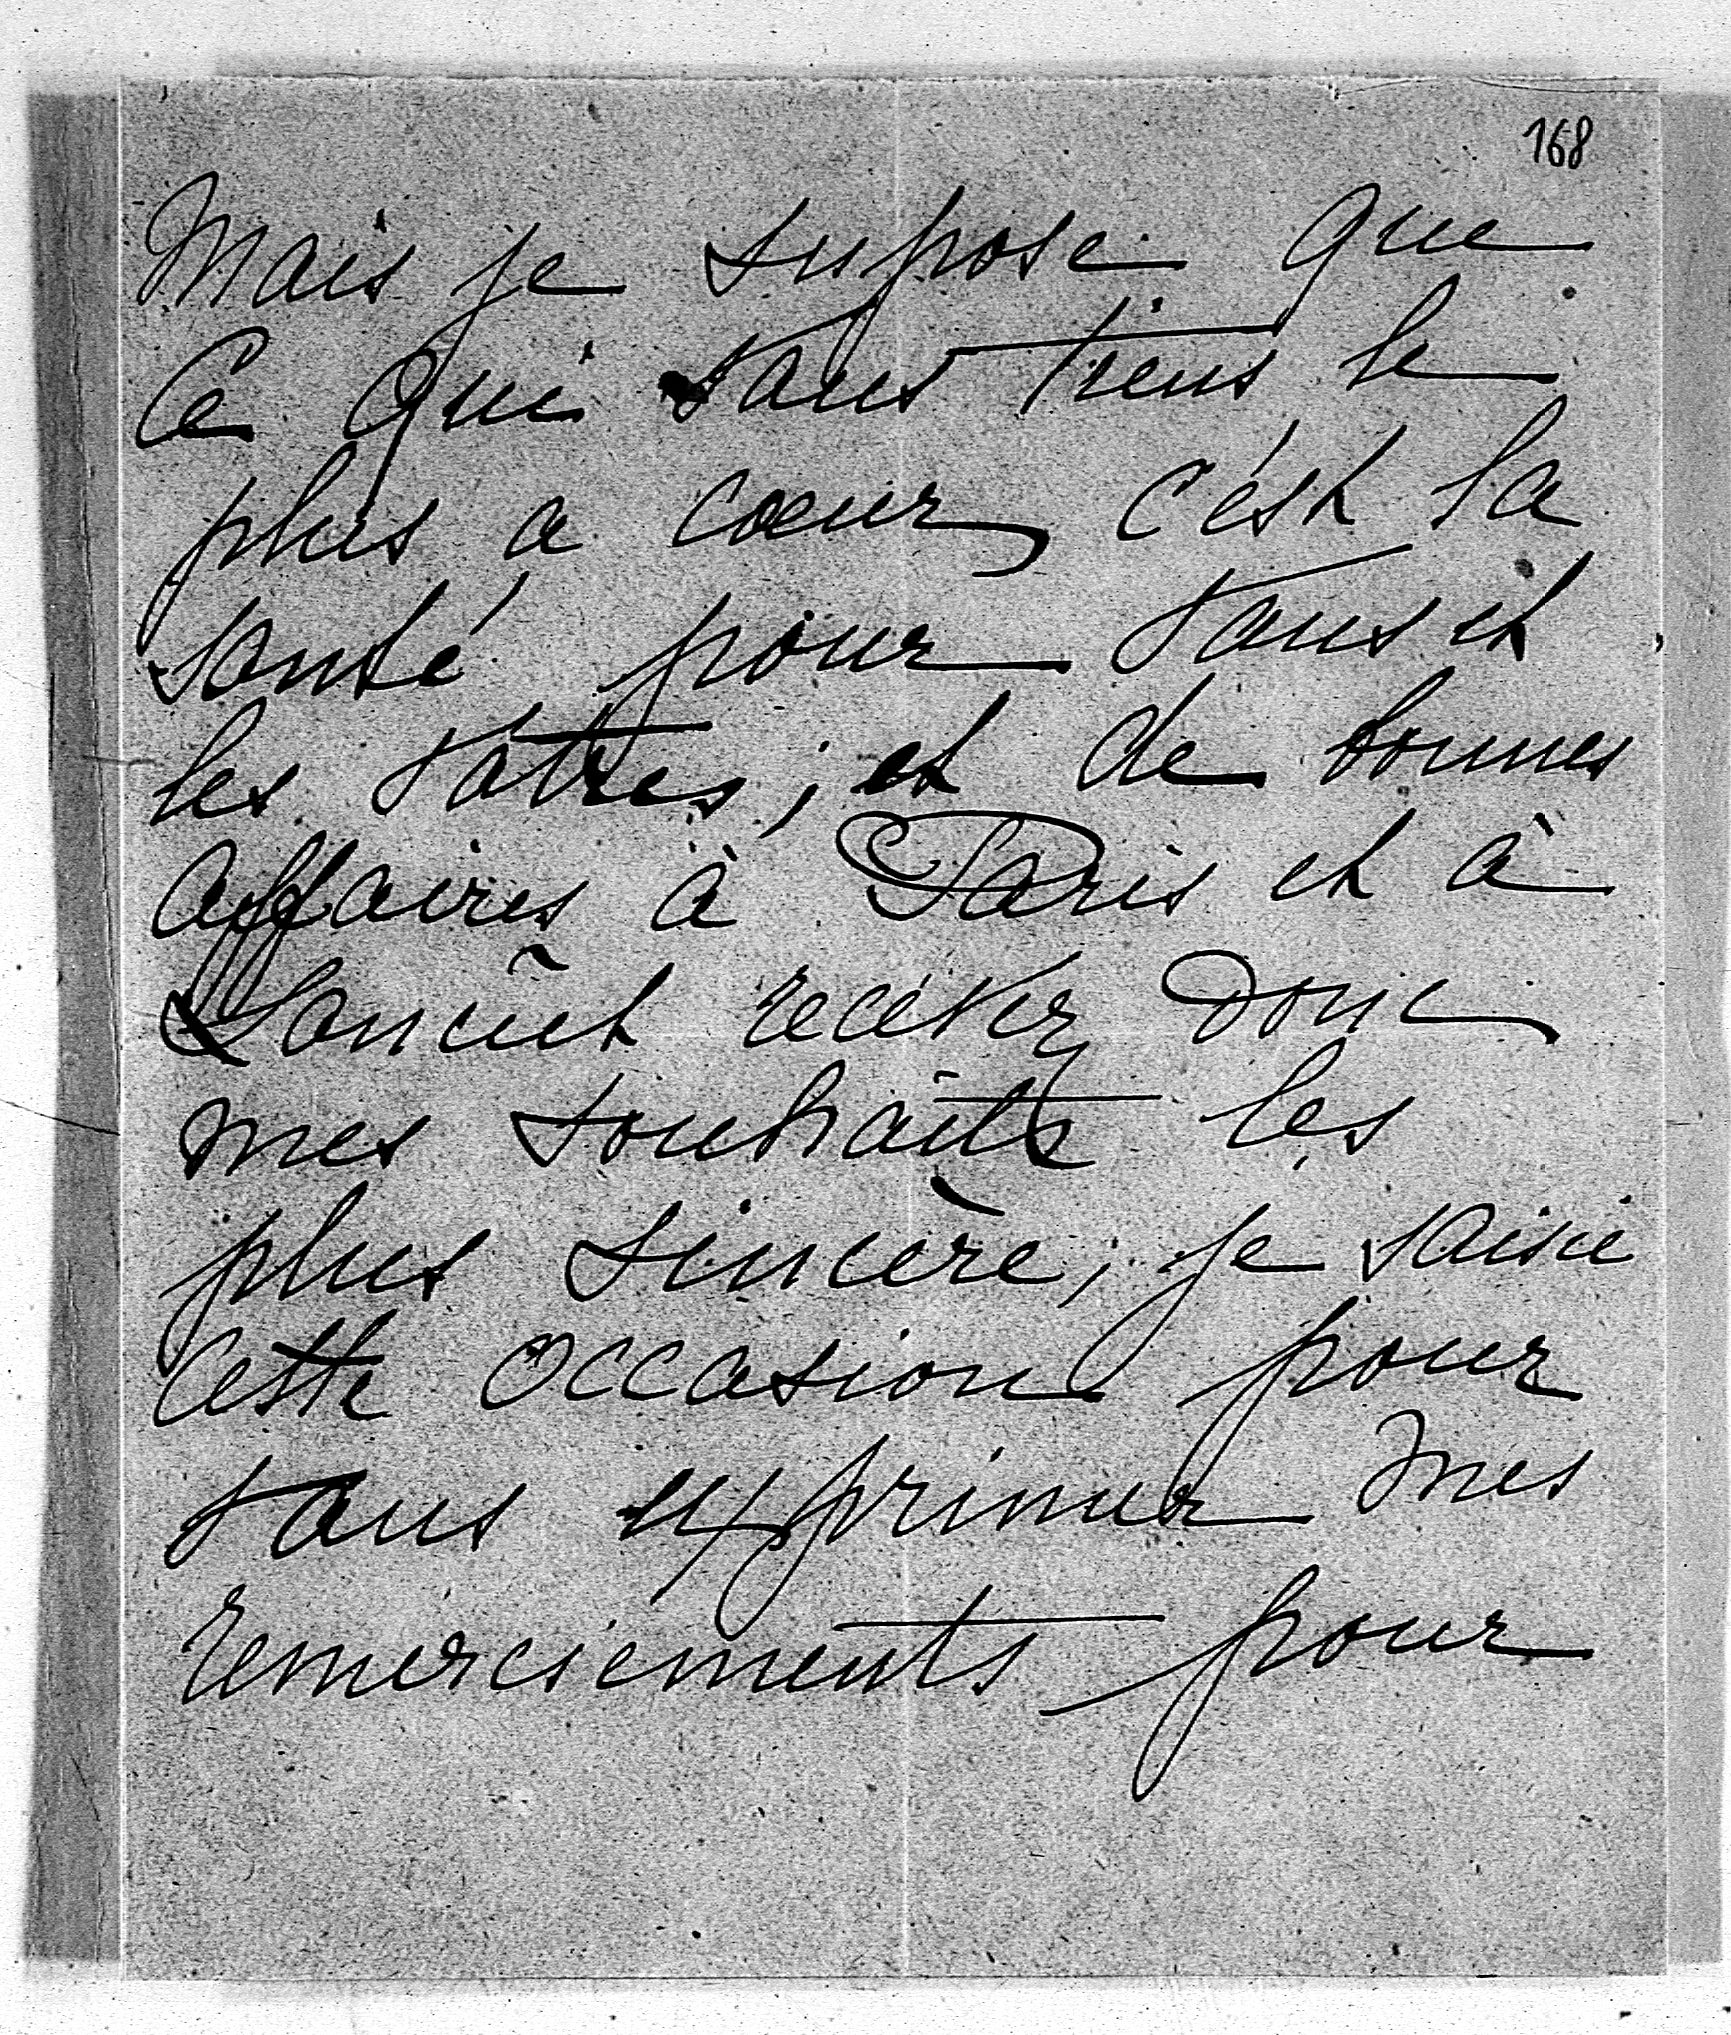 168
Mais je supose que
Ce qui vous tiens le
plus a cœur, c'ést la
santé pour vous et
les votres, et de bonnes
affaires à Paris et à
recéver Donc
mes souhaits les
plus sincère, je saisie
Cette occasion pour
vous exprimer mes
remerciements pour